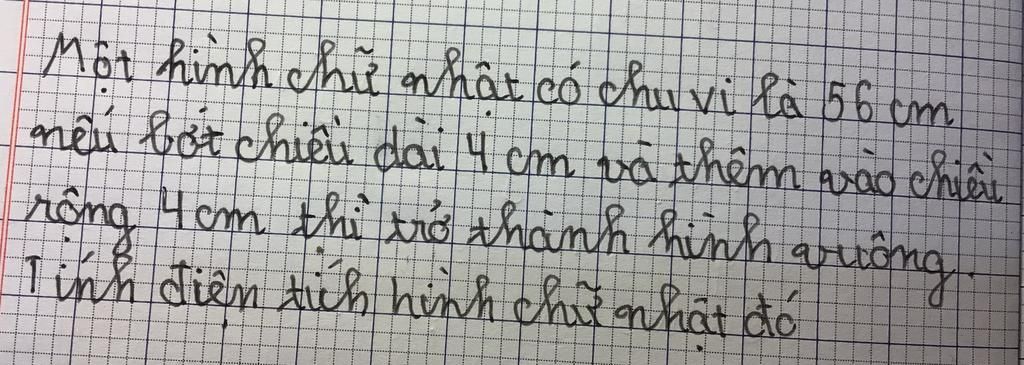 Một hình chữ nhật có chu vi là 56 cm
nếu bớt chiều dài 4 cm và thêm vào chiều
rộng 4 cm thì trở thành hình vuông.
Tính diện tích hình chữ nhật đó